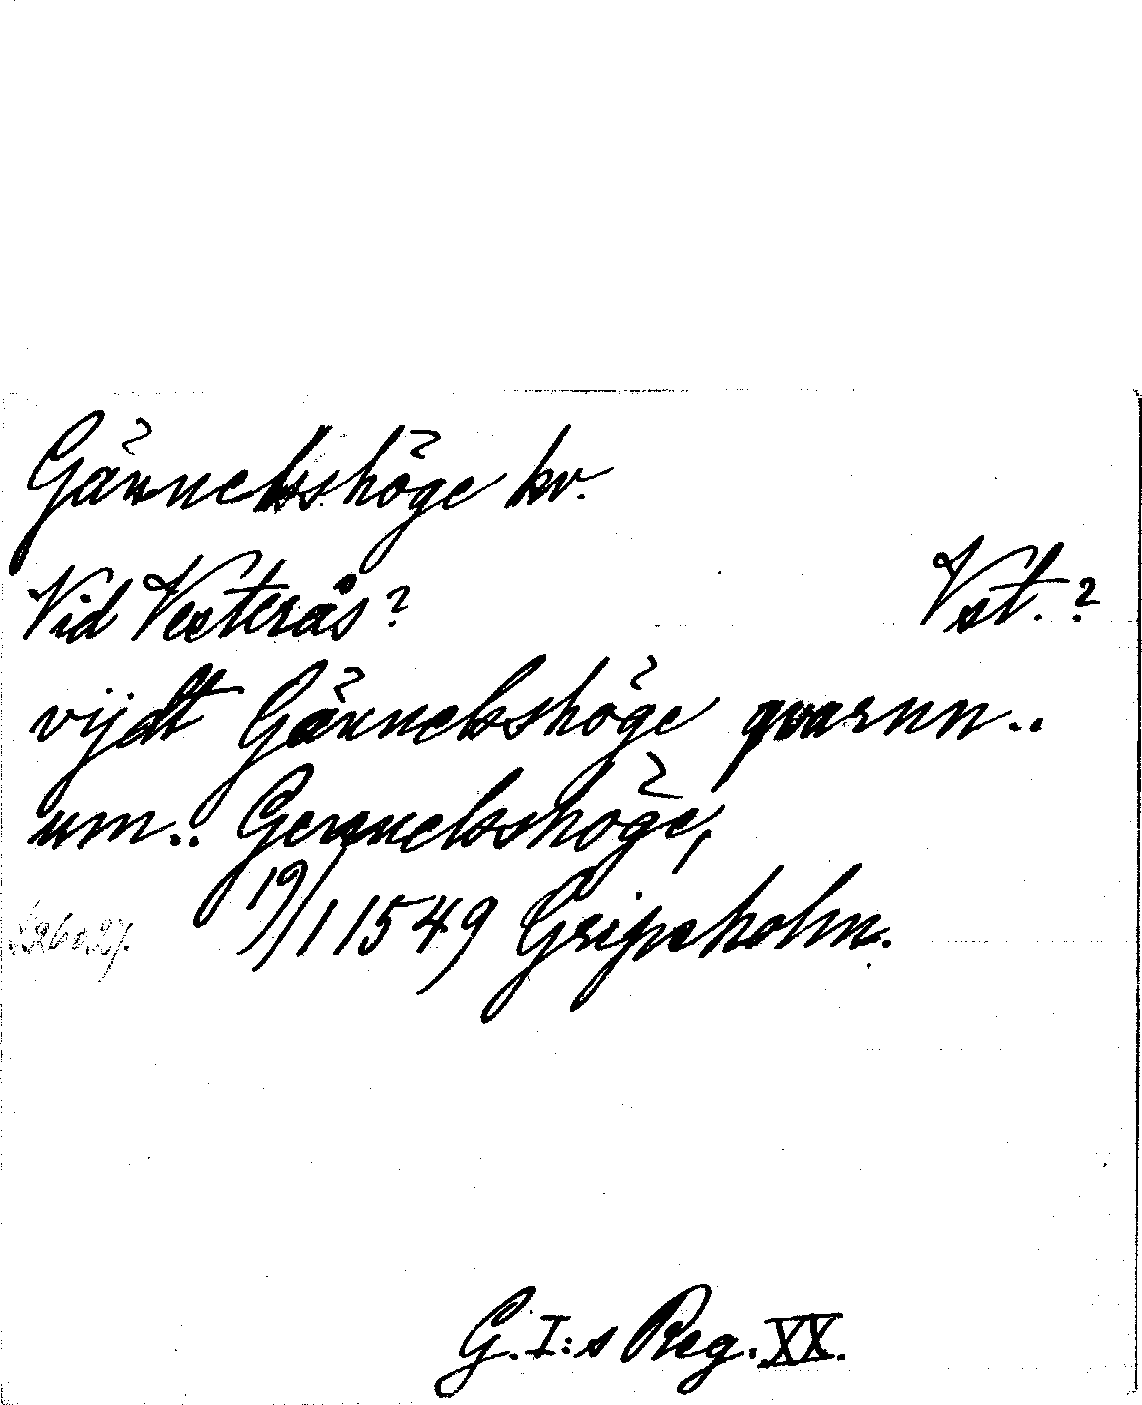 Gännekshöge kv.
Vid Vesterås? Vst.?
vijdt Gännekshöge qvarnn..
um.. Gennekshöge,
19/1 1549 Gripsholm.
G. I:s Reg. XX.